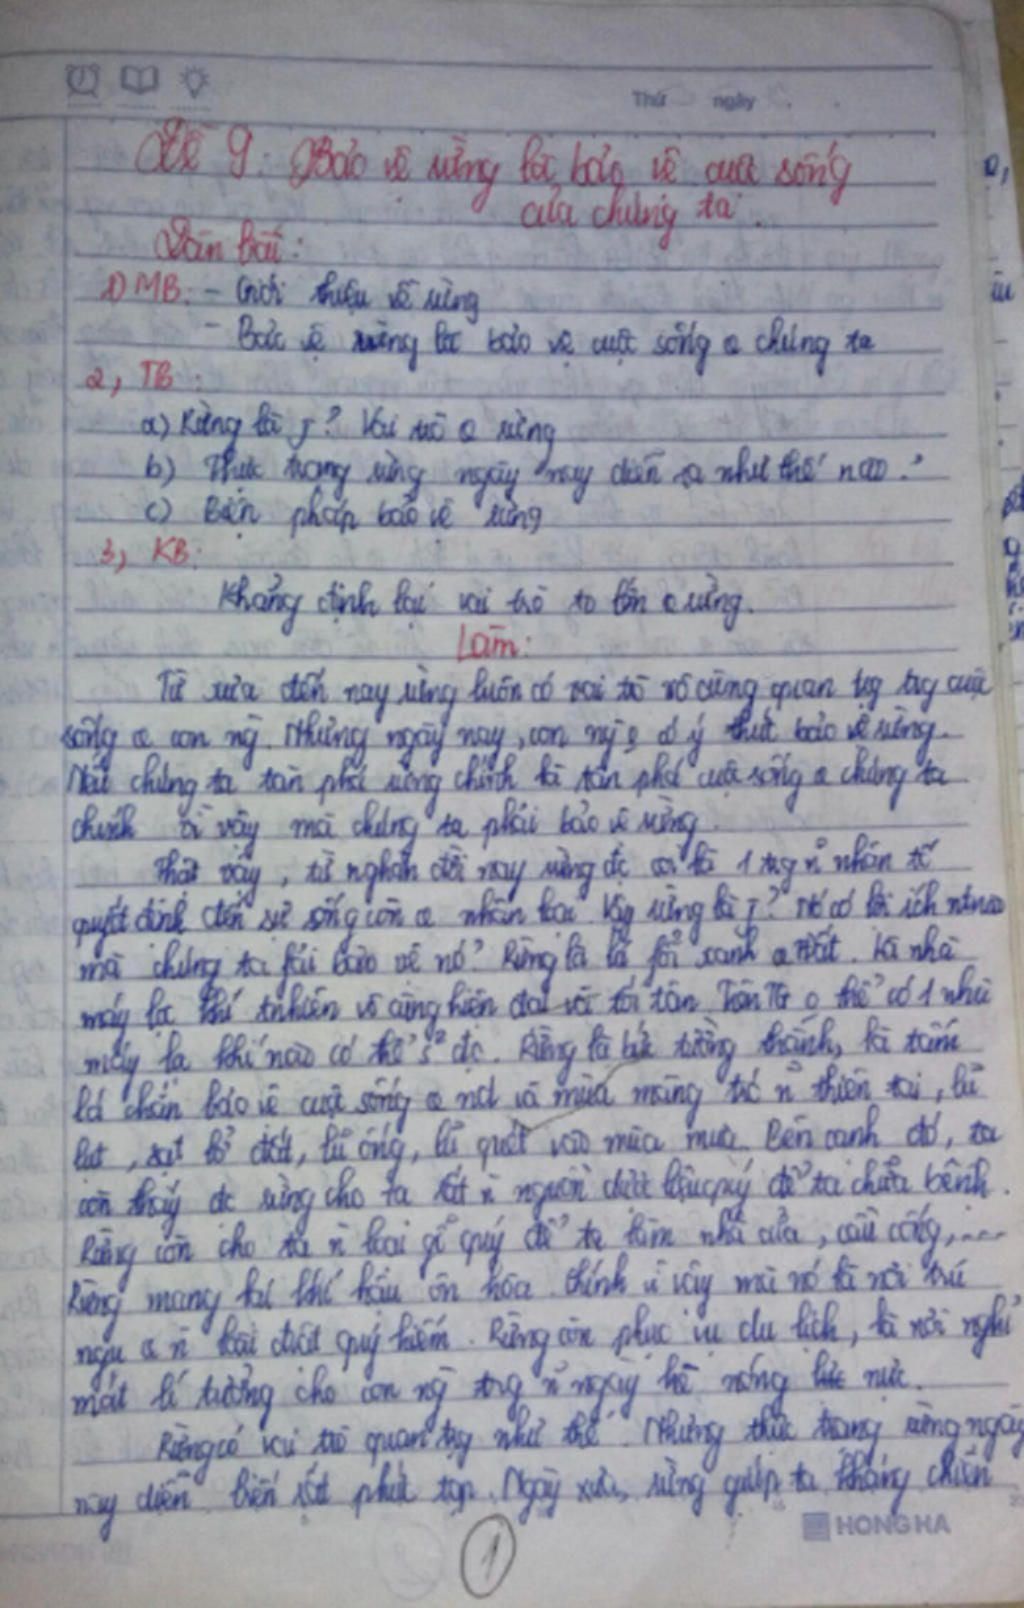 Thứ ngày
Đề 9: Bảo vệ rừng là bảo vệ cuộc sống
của chúng ta.
Dàn bài:
1) MB: - Giới thiệu về rừng
- Bảo vệ rừng là bảo vệ cuộc sống o chúng ta
2, TB:
a) Rừng là j? Vai trò o rừng
b) Thực trạng rừng ngày nay diễn ra như thế nào?
c) Biện pháp bảo vệ rừng
3, KB:
Khẳng định lại vai trò to lớn o rừng.
Làm:
Từ xưa đến nay rừng luôn có vai trò vô cùng quan trg trg cuộc
sống o con ng. Nhưng ngày nay, con ng o có ý thức bảo vệ rừng.
Nếu chúng ta tàn phá rừng chính là tàn phá cuộc sống o chúng ta
chính vì vậy mà chúng ta phải bảo vệ rừng.
Thật vậy, từ nghàn đời nay rừng đc coi là 1 trg n~ nhân tố
quyết định đến sự sống còn o nhân loại. Vậy rừng là j? Nó có lợi ích ntnao
mà chúng ta fải bảo vệ nó? Rừng là lá fổi xanh o TĐất. Là nhà
máy lọc khí tnhiên vô cùng hiện đại và tối tân. Trên TG o thể có 1 nhà
máy lọc khí nào có thể s² đc. Rừng là bức tường thành, là tấm
lá chắn bảo vệ cuộc sống o nd và mùa màng trc n~ thiên tai, lũ
lụt, sạt lở đất, lũ ống, lũ quét vào mùa mưa. Bên cạnh đó, ta
còn thấy đc rừng cho ta rất n` nguồn dược liệu quý để ta chữa bệnh.
Rừng còn cho ta n` loại gỗ quý để ta làm nhà cửa, cầu cống,...
Rừng mang lại khí hậu ôn hòa. Chính vì vậy mà nó là nơi trú
ngụ o n` loài đvật quý hiếm. Rừng còn phục vụ du lịch, là nơi nghỉ
mát lí tưởng cho con ng trg n~ ngày hè nóng nực.
Rừng có vai trò quan trg như thế. Nhưng thực trạng rừng ngày
nay diễn biến rất phức tạp. Ngày xưa, rừng giúp ta kháng chiến
HONG HA
1